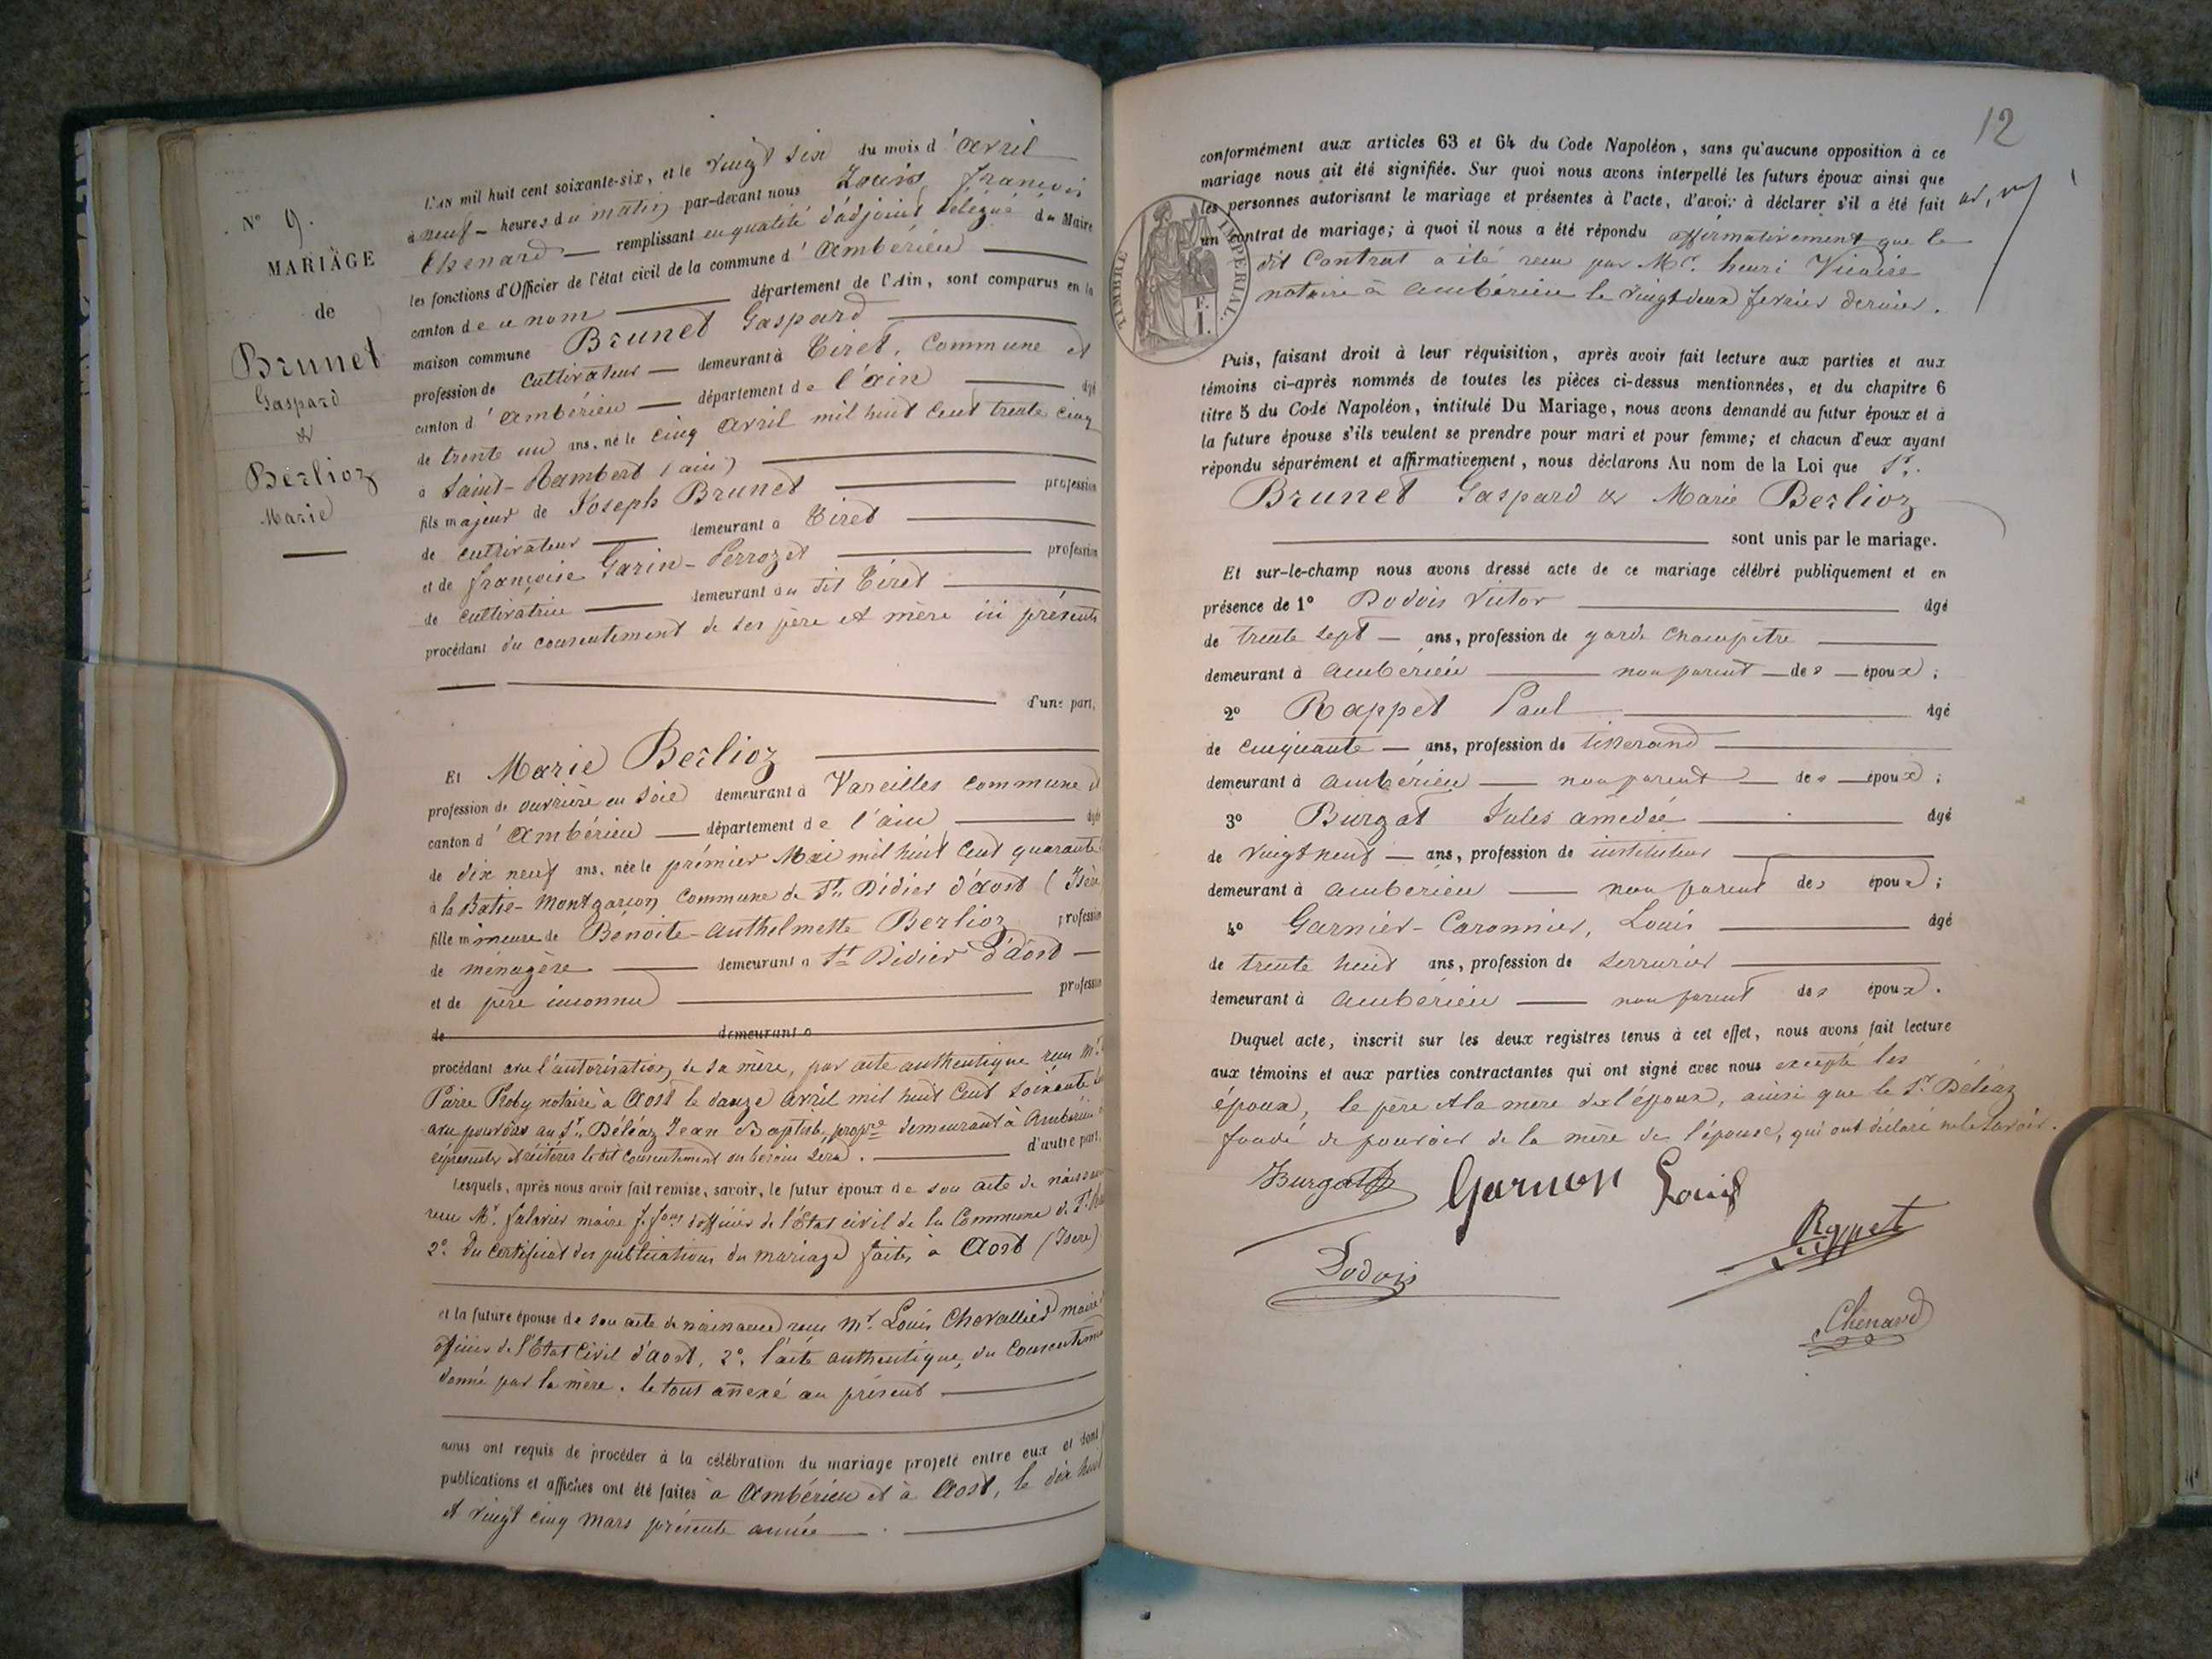 N° 9.
MARIAGE
de
Brunet
Gaspard
&
Berlioz
Marie
L'AN mil huit cent soixante-six, et le vingt six du mois d'avril
à neuf heures du matin par-devant nous Louis François
Chenard remplissant en qualité d'adjoint délégué du Maire
les fonctions d'Officier de l'état civil de la commune d'Ambérieu
canton de ce nom département de l'Ain, sont comparus en la
maison commune Brunet Gaspard
profession de cultivateur demeurant à Tiret, Commune et
canton d'Ambérieu département de l'ain âgé
de trente un ans, né le cinq avril mil huit cent trente cinq
à Saint-Rambert (ain)
fils majeur de Joseph Brunet profession
de cultivateur demeurant à Tiret
et de françoise Garin-Perrozet profession
de cultivatrice demeurant au dit Tiret
procédant du consentement de ses père et mère ici présents
d'une part,
Et Marie Berlioz
profession de ouvrière en soie demeurant à Vareilles commune et
canton d'Ambérieu département de l'ain âgée
de dix neuf ans, née le prémier Mai mil huit cent quarante
à la Batie-Montgarson commune de St. Didier d'aost (Isère
fille mineure de Bénoite-Anthelmette Berlioz profession
de ménagère demeurant à St Didier d'aost
et de père inconnu profession
de demeurant à
procédant avec l'autorisation de sa mère, par acte authentique reçu Mr.
Pierre Proby notaire à Aost le douze avril mil huit cent soixante six
avec pouvoirs au Sr. Béléaz Jean Baptiste, propre. demeurant à Ambérieu
réprésenter et réitérer le dit consentement où besoin sera. d'autre part.
Lesquels, après nous avoir fait remise, savoir, le futur époux de son acte de naissance
reçu Mr. falavier maire f. fons d'officier de l'Etat civil de la Commune de St.
2°. Du Certificat des publications du mariage faites à Aost (Isère)
et la future épouse de son acte de naissance reçu Mr. Louis Chevallier maire
officier de l'Etat Civil d'aost, 2°. l'acte authentique, du consentement
donné par la mère. le tout annexé au présent
nous ont requis de procéder à la célébration du mariage projeté entre eux et dont
publications et affiches ont été faites à Ambérieu et à Aost, le dix huit
et vingt cinq mars présente année.
12
conformément aux articles 63 et 64 du Code Napoléon, sans qu'aucune opposition à ce
mariage nous ait été signifiée. Sur quoi nous avons interpellé les futurs époux ainsi que
les personnes autorisant le mariage et présentes à l'acte, d'avoir à déclarer s'il a été fait
un contrat de mariage; à quoi il nous a été répondu affirmativement que le
dit Contrat a été reçu par Mr. henri Vicaire
notaire à Ambérieu le vingt deux février dernier.
TIMBRE IMPERIAL.
Puis, faisant droit à leur réquisition, après avoir fait lecture aux parties et aux
témoins ci-après nommés de toutes les pièces ci-dessus mentionnées, et du chapitre 6
titre 5 du Code Napoléon, intitulé Du Mariage, nous avons demandé au futur époux et à
la future épouse s'ils veulent se prendre pour mari et pour femme; et chacun d'eux ayant
répondu séparément et affirmativement, nous déclarons Au nom de la Loi que Sr.
Brunet Gaspard & Marie Berlioz
sont unis par le mariage.
Et sur-le-champ nous avons dressé acte de ce mariage célébré publiquement et en
présence de 1° Dodois Victor âgé
de trente sept ans, profession de garde champêtre
demeurant à Ambérieu non parent des époux;
2° Rappet Paul âgé
de cinquante ans, profession de tisserand
demeurant à Ambérieu non parent des époux;
3° Burgat Jules amédée âgé
de vingt neuf ans, profession de instituteur
demeurant à Ambérieu non parent des époux;
4° Garnier-Caronnier, Louis âgé
de trente huit ans, profession de serrurier
demeurant à Ambérieu non parent des époux.
Duquel acte, inscrit sur les deux registres tenus à cet effet, nous avons fait lecture
aux témoins et aux parties contractantes qui ont signé avec nous excepté les
époux, le père et la mère de l'époux, ainsi que le Sr. Béléaz
fondé de pouvoir de la mère de l'épouse, qui ont déclaré ne le savoir.
Burgat
Louis
Rappet
Dodois
Chenard